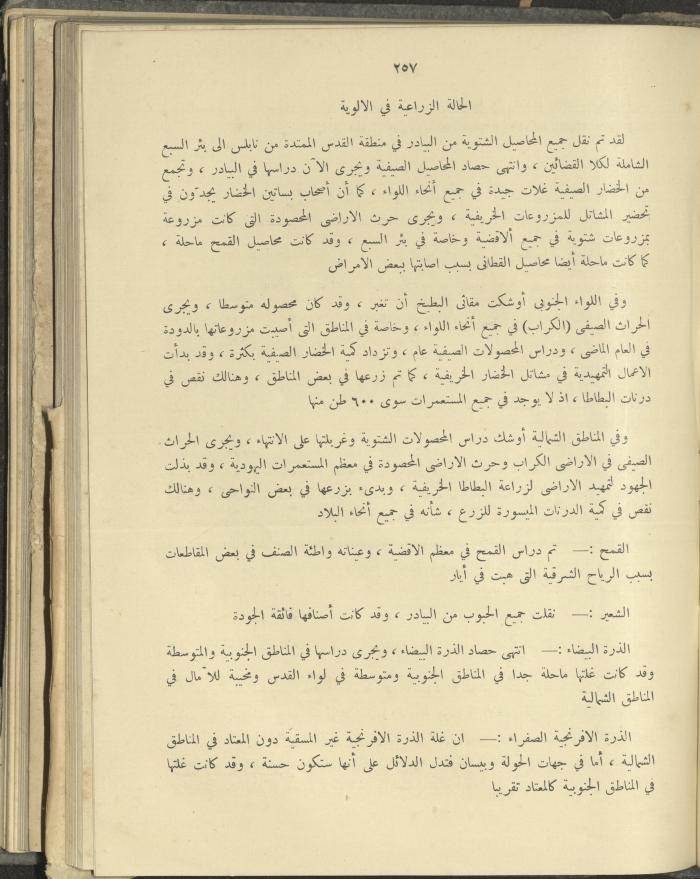 ٢٥٧
الحالة الزراعية في الالوية
لقد تم نقل جميع المحاصيل الشتوية من البيادر في منطقة القدس الممتدة من نابلس الى بئر السبع
الشاملة لكلا القضائين ، وانتهى حصاد المحاصيل الصيفية ويجرى الآن دراسها في البيادر ، وتجمع
من الخضار الصيفية غلات جيدة في جميع أنحاء اللواء ، كما أن أصحاب بساتين الخضار يجدّون في
تحضير المشاتل للمزروعات الخريفية ، ويجرى حرث الاراضى المحصودة التى كانت مزروعة
بمزروعات شتوية في جميع ألاقضية وخاصة في بئر السبع ، وقد كانت محاصيل القمح ماحلة ،
كما كانت ماحلة أيضا محاصيل القطانى بسبب اصابتها ببعض الامراض
وفي اللواء الجنوبى أوشكت مقاثى البطيخ أن تغبر ، وقد كان محصوله متوسطا ، ويجرى
الحراث الصيفى (الكراب) في جميع أنحاء اللواء ، وخاصة في المناطق التى أصيبت مزروعاتها بالدودة
في العام الماضى ، ودراس المحصولات الصيفية عام ، وتزداد كمية الخضار الصيفية بكثرة ، وقد بدأت
الاعمال التمهيدية في مشاتل الخضار الخريفية ، كما تم زرعها في بعض المناطق ، وهنالك نقص في
درنات البطاطا ، اذ لا يوجد في جميع المستعمرات سوى ٦٠٠ طن منها
وفي المناطق الشمالية أوشك دراس المحصولات الشتوية وغربلتها على الانتهاء ، ويجرى الحراث
الصيفى في الاراضى الكراب وحرث الاراضى المحصودة في معظم المستعمرات اليهودية ، وقد بذلت
الجهود لتمهيد الاراضى لزراعة البطاطا الخريفية ، وبدىء بزرعها في بعض النواحى ، وهنالك
نقص في كمية الدرنات الميسورة للزرع ، شأنه في جميع أنحاء البلاد
القمح :— تم دراس القمح في معظم الاقضية ، وعيناته واطئة الصنف في بعض المقاطعات
بسبب الرياح الشرقية التى هبت في أيار
الشعير :— نقلت جميع الحبوب من البيادر ، وقد كانت أصنافها فائقة الجودة
الذرة البيضاء :— انتهى حصاد الذرة البيضاء ، ويجرى دراسها في المناطق الجنوبية والمتوسطة
وقد كانت غلتها ماحلة جدا في المناطق الجنوبية ومتوسطة في لواء القدس ومخيبة للآمال في
المناطق الشمالية
الذرة الافرنجية الصفراء :— ان غلة الذرة الافرنجية غير المسقيّة دون المعتاد في المناطق
الشمالية ، أما في جهات الحولة وبيسان فتدل الدلائل على أنها ستكون حسنة ، وقد كانت غلتها
في المناطق الجنوبية كالمعتاد تقريبا